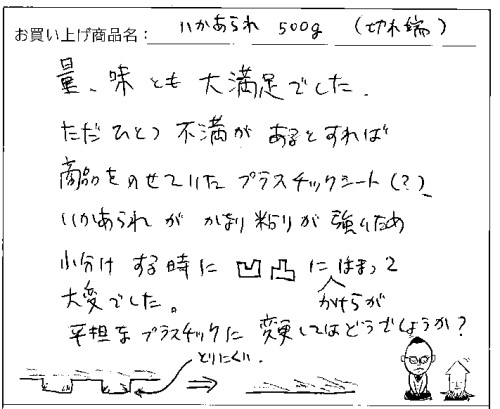 お買い上げ商品名： いかあられ 500g （切れ端）
量、味とも大満足でした。
ただひとつ不満があるとすれば
商品をのせていたプラスチックシート(？)
いかあられがかなり粘りが強いため
小分けする時に凹凸にはまって
かけらが
大変でした。
平担なプラスチックに変更してはどうでしょうか？
とりにくい．